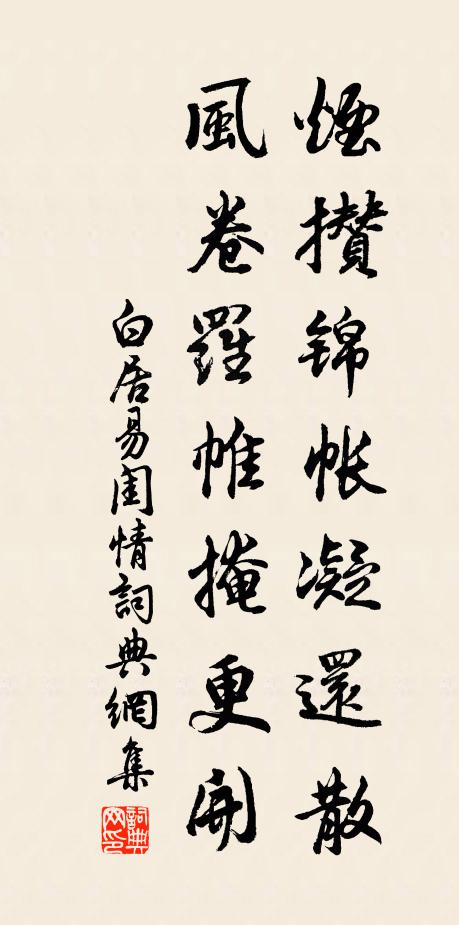 煙攢錦帳凝還散
風卷羅帷掩更開
白居易闺情詞典網集
詞典网印